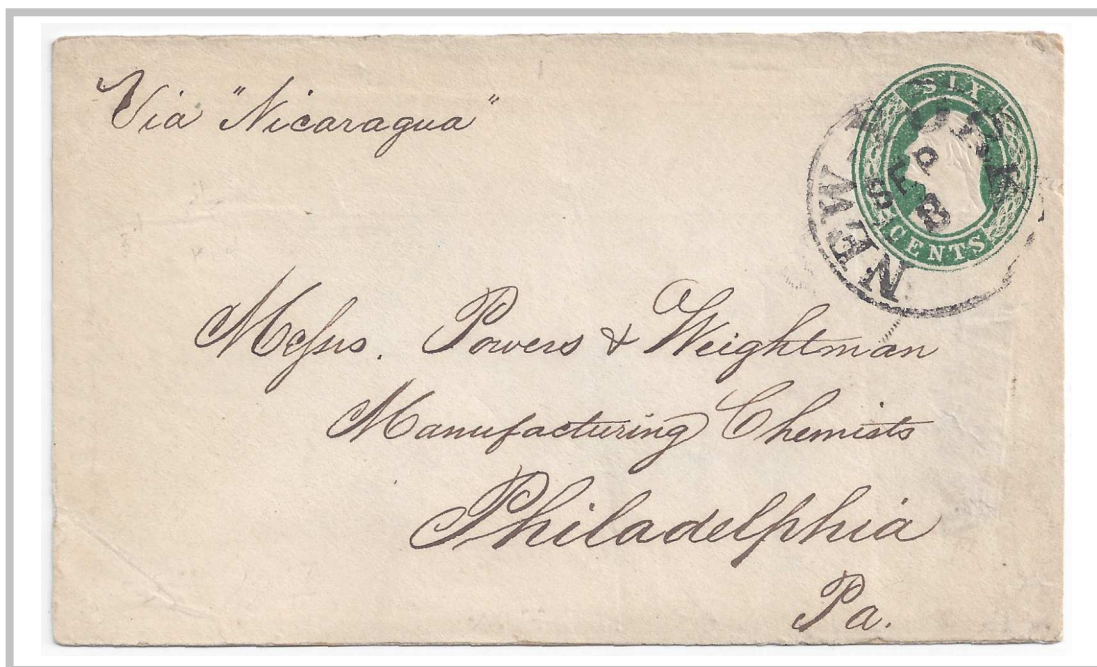 Via "Nicaragua"
SIX
CENTS
NEW YORK
SEP
8
Messrs. Powers & Weightman
Manufacturing Chemists
Philadelphia
Pa.